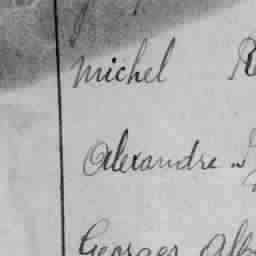 Michel
Alexandre
Georges